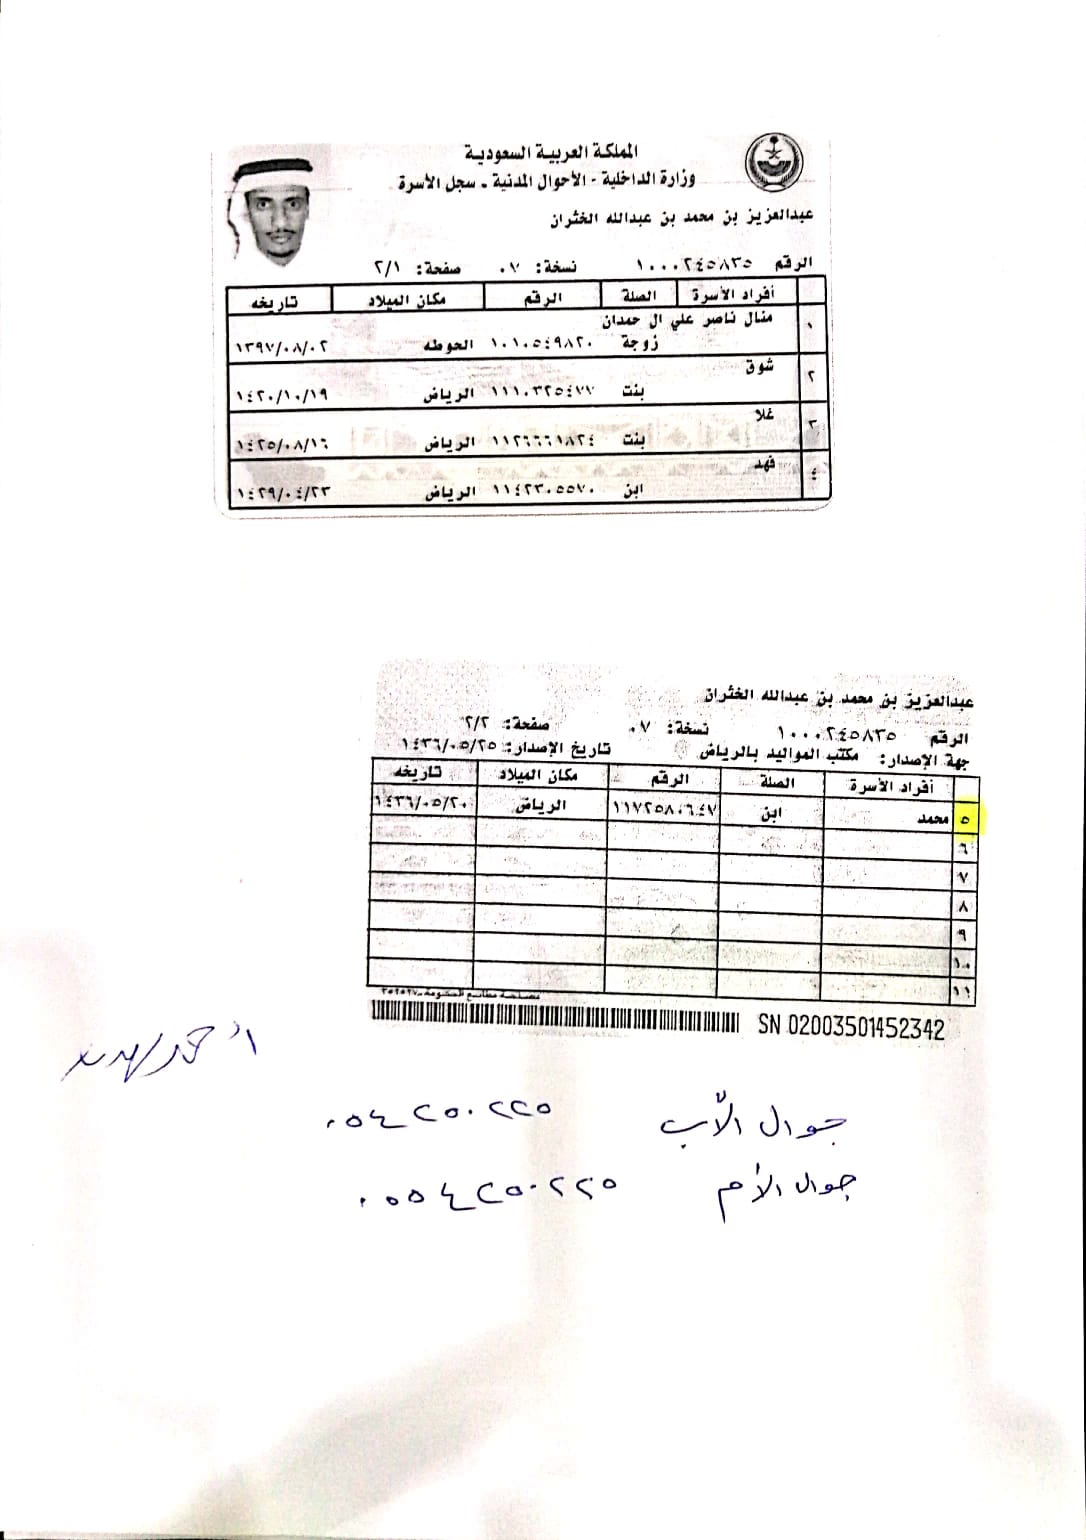 المملكة العربية السعودية
وزارة الداخلية - الأحوال المدنية - سجل الأسرة
عبدالعزيز بن محمد بن عبدالله الخثران
الرقم ١٠٠٠٢٤٥٨٣٥ نسخة: ٠٧ صفحة: ٢/١
أفراد الأسرة الصلة الرقم مكان الميلاد تاريخه
١ منال ناصر علي ال حمدان
زوجة ١٠١٠٥٤٩٨٢٠ الحوطه ١٣٩٧/٠٨/٠٢
٢ شوق
بنت ١١١٠٣٢٥٤٧٧ الرياض ١٤٢٠/١٠/١٩
٣ غلا
بنت ١١٢٦٦٦١٨٢٤ الرياض ١٤٢٥/٠٨/١٦
٤ فهد
ابن ١١٤٢٣٠٥٥٧٠ الرياض ١٤٢٩/٠٤/٢٣
عبدالعزيز بن محمد بن عبدالله الخثران
الرقم ١٠٠٠٢٤٥٨٣٥ نسخة: ٠٧ صفحة: ٢/٢
جهة الإصدار: مكتب المواليد بالرياض تاريخ الإصدار: ١٤٣٦/٠٥/٢٥
أفراد الأسرة الصلة الرقم مكان الميلاد تاريخه
٥ محمد ابن ١١٧٢٥٨٠٦٤٧ الرياض ١٤٣٦/٠٥/٢٠
٦
٧
٨
٩
١٠
١١
مصلحة مطابع الحكومة
SN 02003501452342
جوال الأب ٠٥٤٢٥٠٢٢٥
جوال الأم ٠٥٥٤٢٥٠٢٢٥